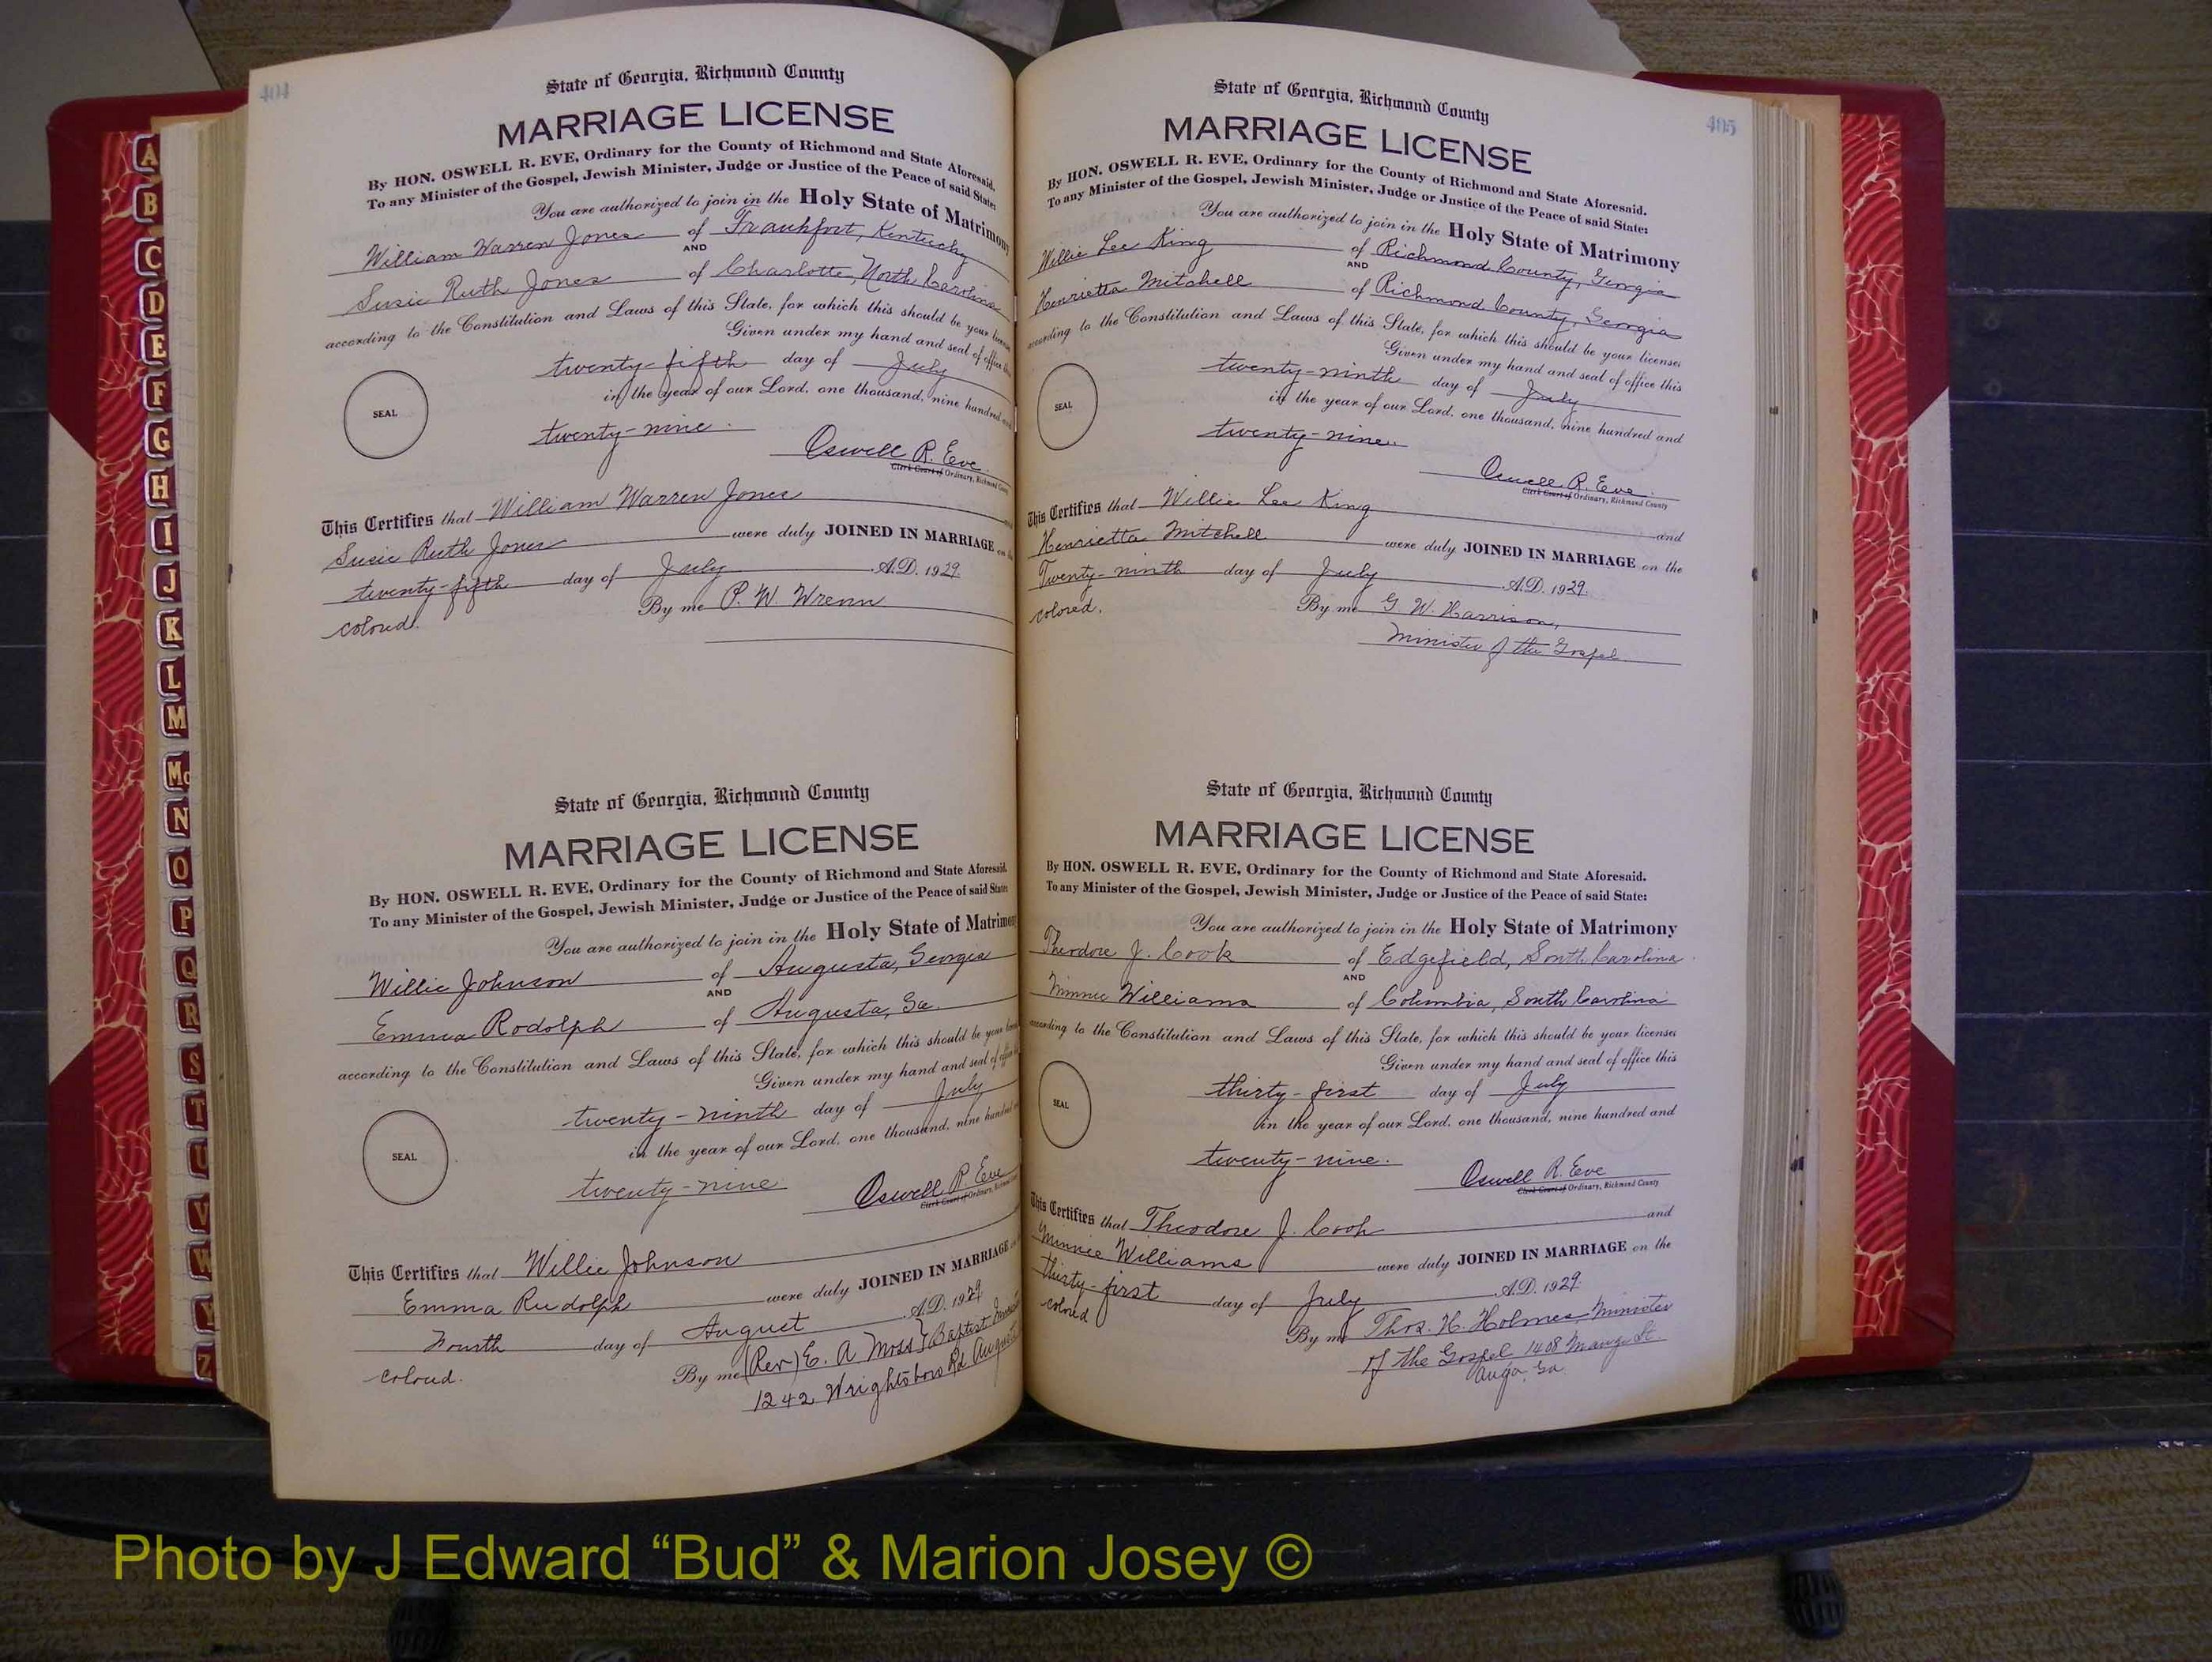 404
State of Georgia, Richmond County
MARRIAGE LICENSE
By HON. OSWELL R. EVE, Ordinary for the County of Richmond and State Aforesaid.
To any Minister of the Gospel, Jewish Minister, Judge or Justice of the Peace of said State:
You are authorized to join in the Holy State of Matrimony
William Warren Jones of Frankfort, Kentucky
AND
Susie Ruth Jones of Charlotte, North Carolina
according to the Constitution and Laws of this State, for which this should be your
Given under my hand and seal of office
twenty-fifth day of July
in the year of our Lord, one thousand, nine hundred
SEAL
twenty-nine.
Oswell R. Eve
Clerk Court of Ordinary, Richmond County
This Certifies that William Warren Jones
Susie Ruth Jones were duly JOINED IN MARRIAGE on
twenty-fifth day of July A.D. 1929.
colored. By me P. W. Wrenn
State of Georgia, Richmond County
MARRIAGE LICENSE
By HON. OSWELL R. EVE, Ordinary for the County of Richmond and State Aforesaid.
To any Minister of the Gospel, Jewish Minister, Judge or Justice of the Peace of said State:
You are authorized to join in the Holy State of Matrimony
Willie Johnson of Augusta, Georgia
AND
Emma Rodolph of Augusta, Ga.
according to the Constitution and Laws of this State, for which this should be your
Given under my hand and seal of
twenty-ninth day of July
in the year of our Lord, one thousand, nine hundred
SEAL
twenty-nine
Oswell R. Eve
Clerk Court of Ordinary, Richmond
This Certifies that Willie Johnson
Emma Rudolph were duly JOINED IN MARRIAGE
Fourth day of August A.D. 1929
colored. By me (Rev) E. A Moss Baptist
1242 Wrightsboro Rd
405
State of Georgia, Richmond County
MARRIAGE LICENSE
By HON. OSWELL R. EVE, Ordinary for the County of Richmond and State Aforesaid.
To any Minister of the Gospel, Jewish Minister, Judge or Justice of the Peace of said State:
You are authorized to join in the Holy State of Matrimony
Willie Lee King of Richmond County, Georgia
AND
Henrietta Mitchell of Richmond County, Georgia
according to the Constitution and Laws of this State, for which this should be your licenses
Given under my hand and seal of office this
twenty-ninth day of July
in the year of our Lord, one thousand, nine hundred and
SEAL
twenty-nine.
Oswell R. Eve.
Clerk Court of Ordinary, Richmond County
This Certifies that Willie Lee King and
Henrietta Mitchell were duly JOINED IN MARRIAGE on the
Twenty-ninth day of July A.D. 1929.
colored. By me G. W. Harrison,
Minister of the Gospel
State of Georgia, Richmond County
MARRIAGE LICENSE
By HON. OSWELL R. EVE, Ordinary for the County of Richmond and State Aforesaid.
To any Minister of the Gospel, Jewish Minister, Judge or Justice of the Peace of said State:
You are authorized to join in the Holy State of Matrimony
Theodore J. Cook of Edgefield, South Carolina
AND
Minnie Williams of Columbia, South Carolina
according to the Constitution and Laws of this State, for which this should be your licenses
Given under my hand and seal of office this
thirty-first day of July
in the year of our Lord, one thousand, nine hundred and
SEAL
twenty-nine.
Oswell R. Eve
Clerk Court of Ordinary, Richmond County
This Certifies that Theodore J. Cook and
Minnie Williams were duly JOINED IN MARRIAGE on the
thirty-first day of July A.D. 1929.
colored By me Thos. H. Holmes, Minister
of the Gospel 1408 St.
Auga. Ga.
A
B
C
D
E
F
G
H
I
J
K
L
M
Mc
N
O
P
Q
R
S
T
U
V
W
Y
Z
Photo by J Edward “Bud” & Marion Josey ©